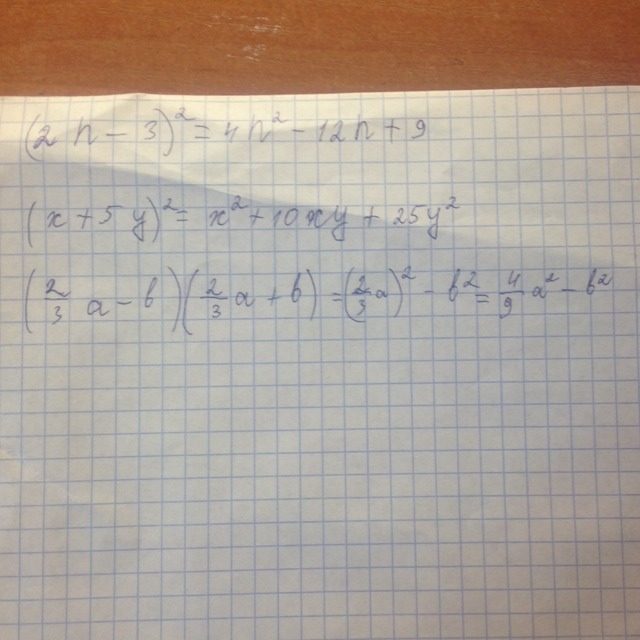 (2n - 3)² = 4n² - 12n + 9
(x + 5y)² = x² + 10xy + 25y²
(2/3 a - b)(2/3 a + b) = (2/3 a)² - b² = 4/9 a² - b²